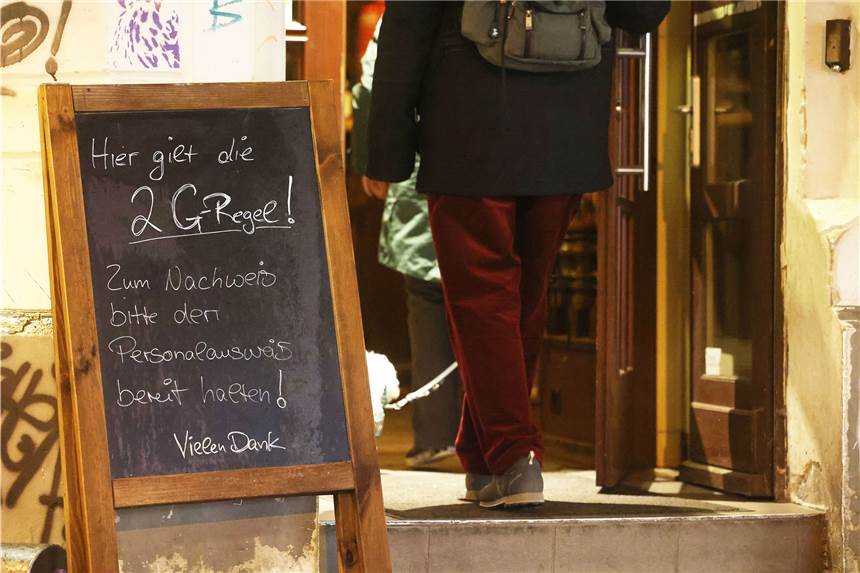 Hier gilt die
2 G-Regel!
Zum Nachweis
bitte den
Personalausweis
bereit halten!
Vielen Dank